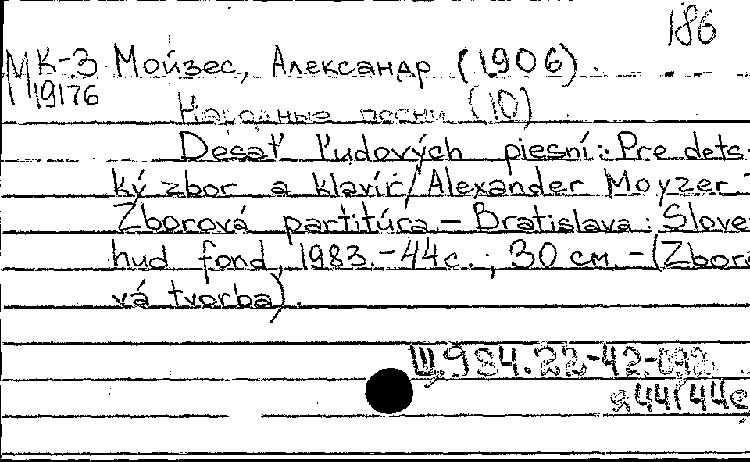 186
МК-3 Мойзес, Александр (1906).
19176
Народные песни (10)
Desať ľudových piesní: Pre dets-
ký zbor a klavír/Alexander Moyzer.-
Zborová partitúra.- Bratislava: Slove
hud fond, 1983.-44с.; 30 см.-(Zboro
vá tvorba).
Щ984.22-42-092
я44(44с